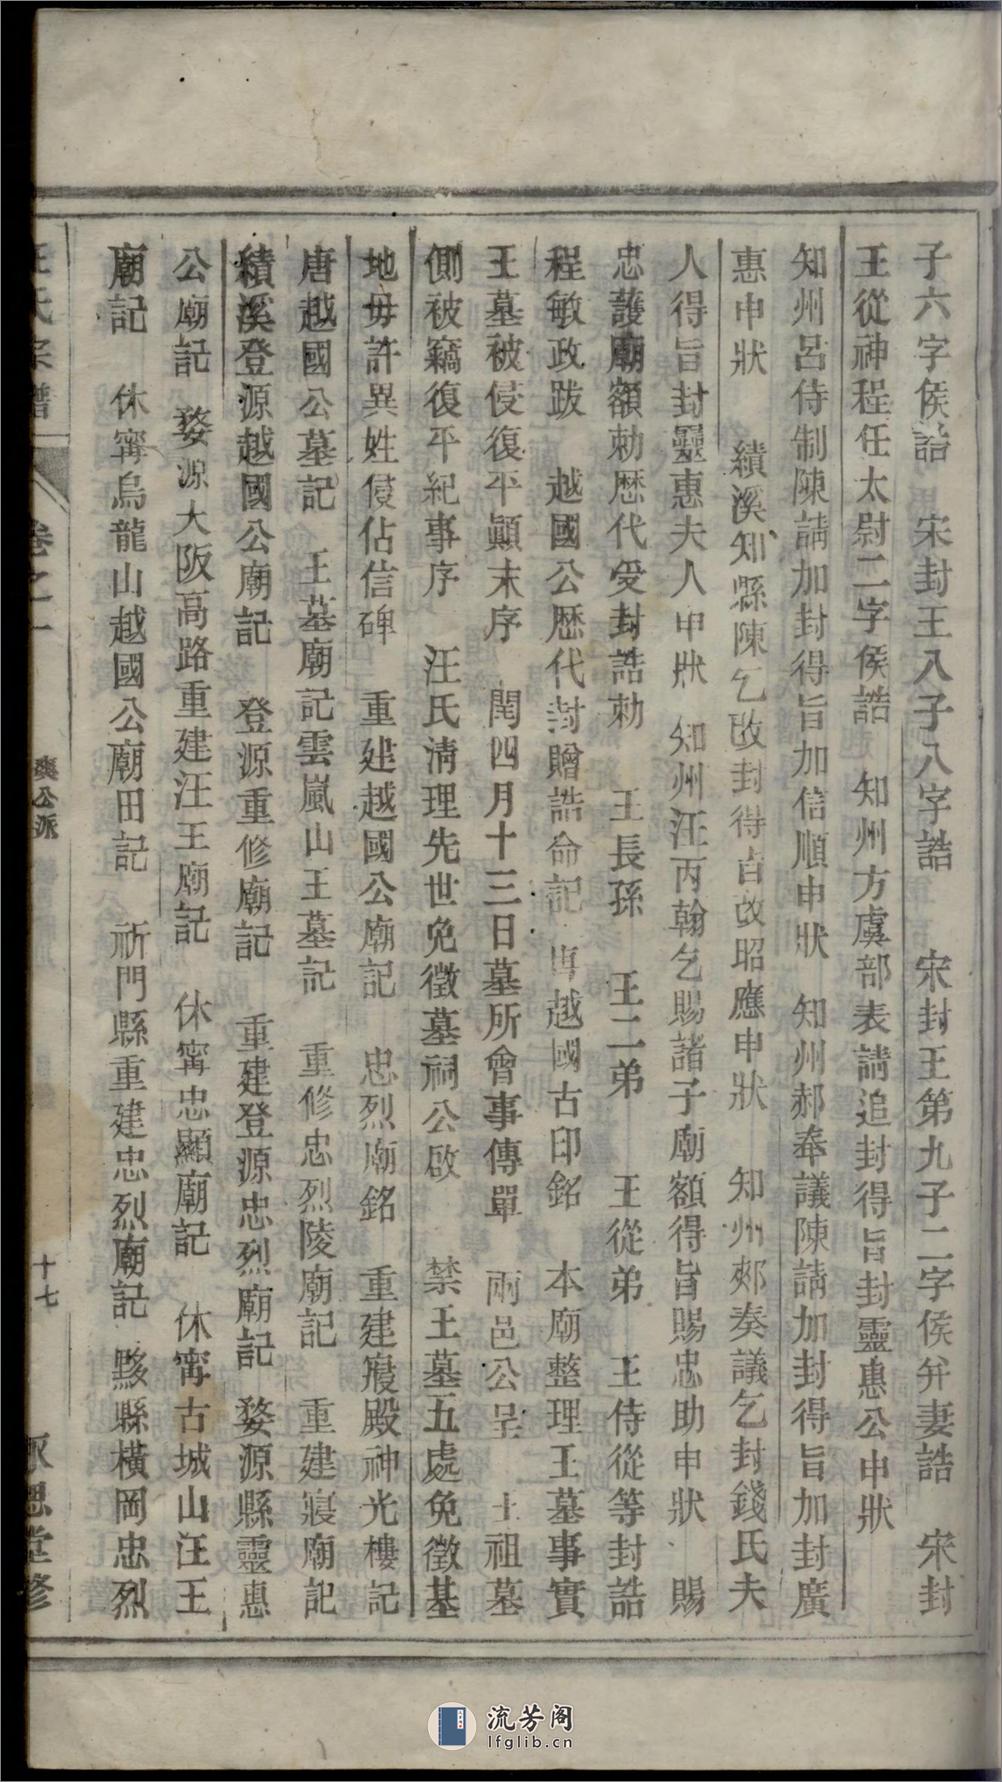 子六字侯誥　宋封王八子八字誥　宋封王第九子二字侯弁妻誥　宋封
王從神程任太尉二字侯誥　知州方虞部表請追封得旨封靈惠公申狀
知州呂侍制陳請加封得旨加信順申狀　知州郝奉議陳請加封得旨加封廣
惠申狀　績溪知縣陳乞改封得旨改昭應申狀　知州郟奏議乞封錢氏夫
人得旨封靈惠夫人申狀　知州汪丙翰乞賜諸子廟額得旨賜忠助申狀　賜
忠護廟額勅歷代受封誥勅　王長孫　王二弟　王從弟　王侍從等封誥
程敏政跋　越國公歷代封贈誥命記　唐越國古印銘　本廟整理王墓事實
王墓被侵復平顛末序　閏四月十三日墓所會事傳單　兩邑公呈　土祖墓
側被竊復平紀事序　汪氏清理先世免徵墓祠公啟　禁王墓五處免徵基
地毋許異姓侵佔信碑　重建越國公廟記　忠烈廟銘　重建寢殿神光樓記
唐越國公墓記　王墓廟記雲嵐山王墓記　重修忠烈陵廟記　重建寢廟記
績溪登源越國公廟記　登源重修廟記　重建登源忠烈廟記　婺源縣靈惠
公廟記　婺源大阪高路重建汪王廟記　休寧忠顯廟記　休寧古城山汪王
廟記　休寧烏龍山越國公廟田記　祈門縣重建忠烈廟記　黟縣橫岡忠烈
氏宗譜　卷之一　爽公派　十七　思堂修
流芳阁
lfglib.cn